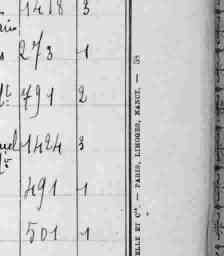 1418 3
273 1
791 2
1424 3
491 1
501 1
ELLE ET Cie. — PARIS, LIMOGES, NANCY. —